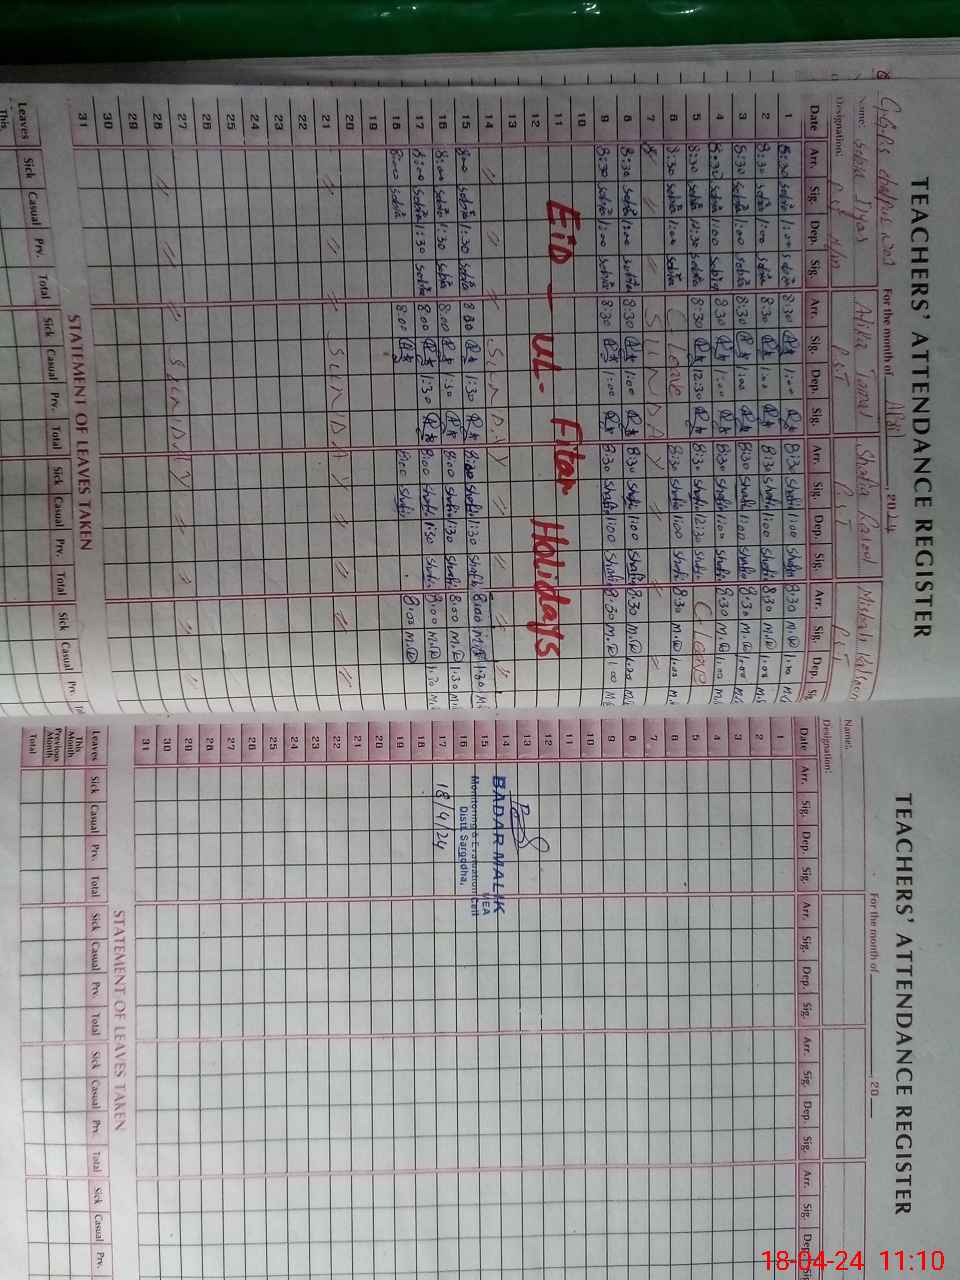 TEACHERS' ATTENDANCE REGISTER
For the month of April, 2024
Name: Sobia Ilyas Atika Shafia Rasool Misbah Kalsoom
Designation: PST PST PST
Date Arr. Sig. Dep. Sig. Arr. Sig. Dep. Sig. Arr. Sig. Dep. Sig. Arr. Sig. Dep. Sig
1 8:30 Sobia 1:00 Sobia 8:30 1:00 8:30 Shafia 1:00 Shafia 8:30 M.R 1:00
2 8:30 Sobia 1:00 Sobia 8:30 1:00 8:30 Shafia 1:00 Shafia 8:30 M.R 1:00
3 8:30 Sobia 1:00 Sobia 8:30 1:00 8:30 Shafia 1:00 Shafia 8:30 M.R 1:00
4 8:30 Sobia 1:00 Sobia 8:30 1:00 8:30 Shafia 1:00 Shafia 8:30 M.R 1:00
5 8:30 Sobia 12:30 Sobia 8:30 12:30 8:30 Shafia 12:30 Shafia C Leave
6 8:30 Sobia 1:00 Sobia C Leave 8:30 Shafia 1:00 Shafia 8:30 M.R 1:00
7 " " SUNDAY " "
8 8:30 Sobia 1:00 Sobia 8:30 1:00 8:30 Shafia 1:00 Shafia 8:30 M.R 1:00
9 8:30 Sobia 1:00 Sobia 8:30 1:00 8:30 Shafia 1:00 Shafia 8:30 M.R 1:00
10
11
Eid - ul - Fitar Holidays
12
13
14 " " SUNDAY " " "
15 8:00 Sobia 1:30 Sobia 8:30 1:30 8:00 Shafia 1:30 Shafia 8:00 M.R 1:30
16 8:00 Sobia 1:30 Sobia 8:00 1:30 8:00 Shafia 1:30 Shafia 8:00 M.R 1:30
17 8:00 Sobia 1:30 Sobia 8:00 1:30 8:00 Shafia 1:30 Shafia 8:00 M.R 1:30
18 8:00 Sobia 8:00 8:00 Shafia 8:00 M.R
19
20
21 " " " SUNDAY " " "
22
23
24
25
26
27
28 " " " SUNDAY " " "
29
30
31
STATEMENT OF LEAVES TAKEN
Leaves Sick Casual Prv. Total Sick Casual Prv. Total Sick Casual Prv. Total Sick Casual Prv.
This
TEACHERS' ATTENDANCE REGISTER
For the month of , 20
Name:
Designation:
Date Arr. Sig. Dep. Sig. Arr. Sig. Dep. Sig. Arr. Sig. Dep. Sig. Arr. Sig. Dep. Sig
1
2
3
4
5
6
7
8
9
10
11
12
13
14
BADAR MALIK
MEA
15
Monitoring & Evaluation Cell
16
Distt. Sargodha.
17
18/4/24
18
19
20
21
22
23
24
25
26
27
28
29
30
31
STATEMENT OF LEAVES TAKEN
Leaves Sick Casual Prv. Total Sick Casual Prv. Total Sick Casual Prv. Total Sick Casual Prv.
This Month
Previous Month
Total
18-04-24 11:10